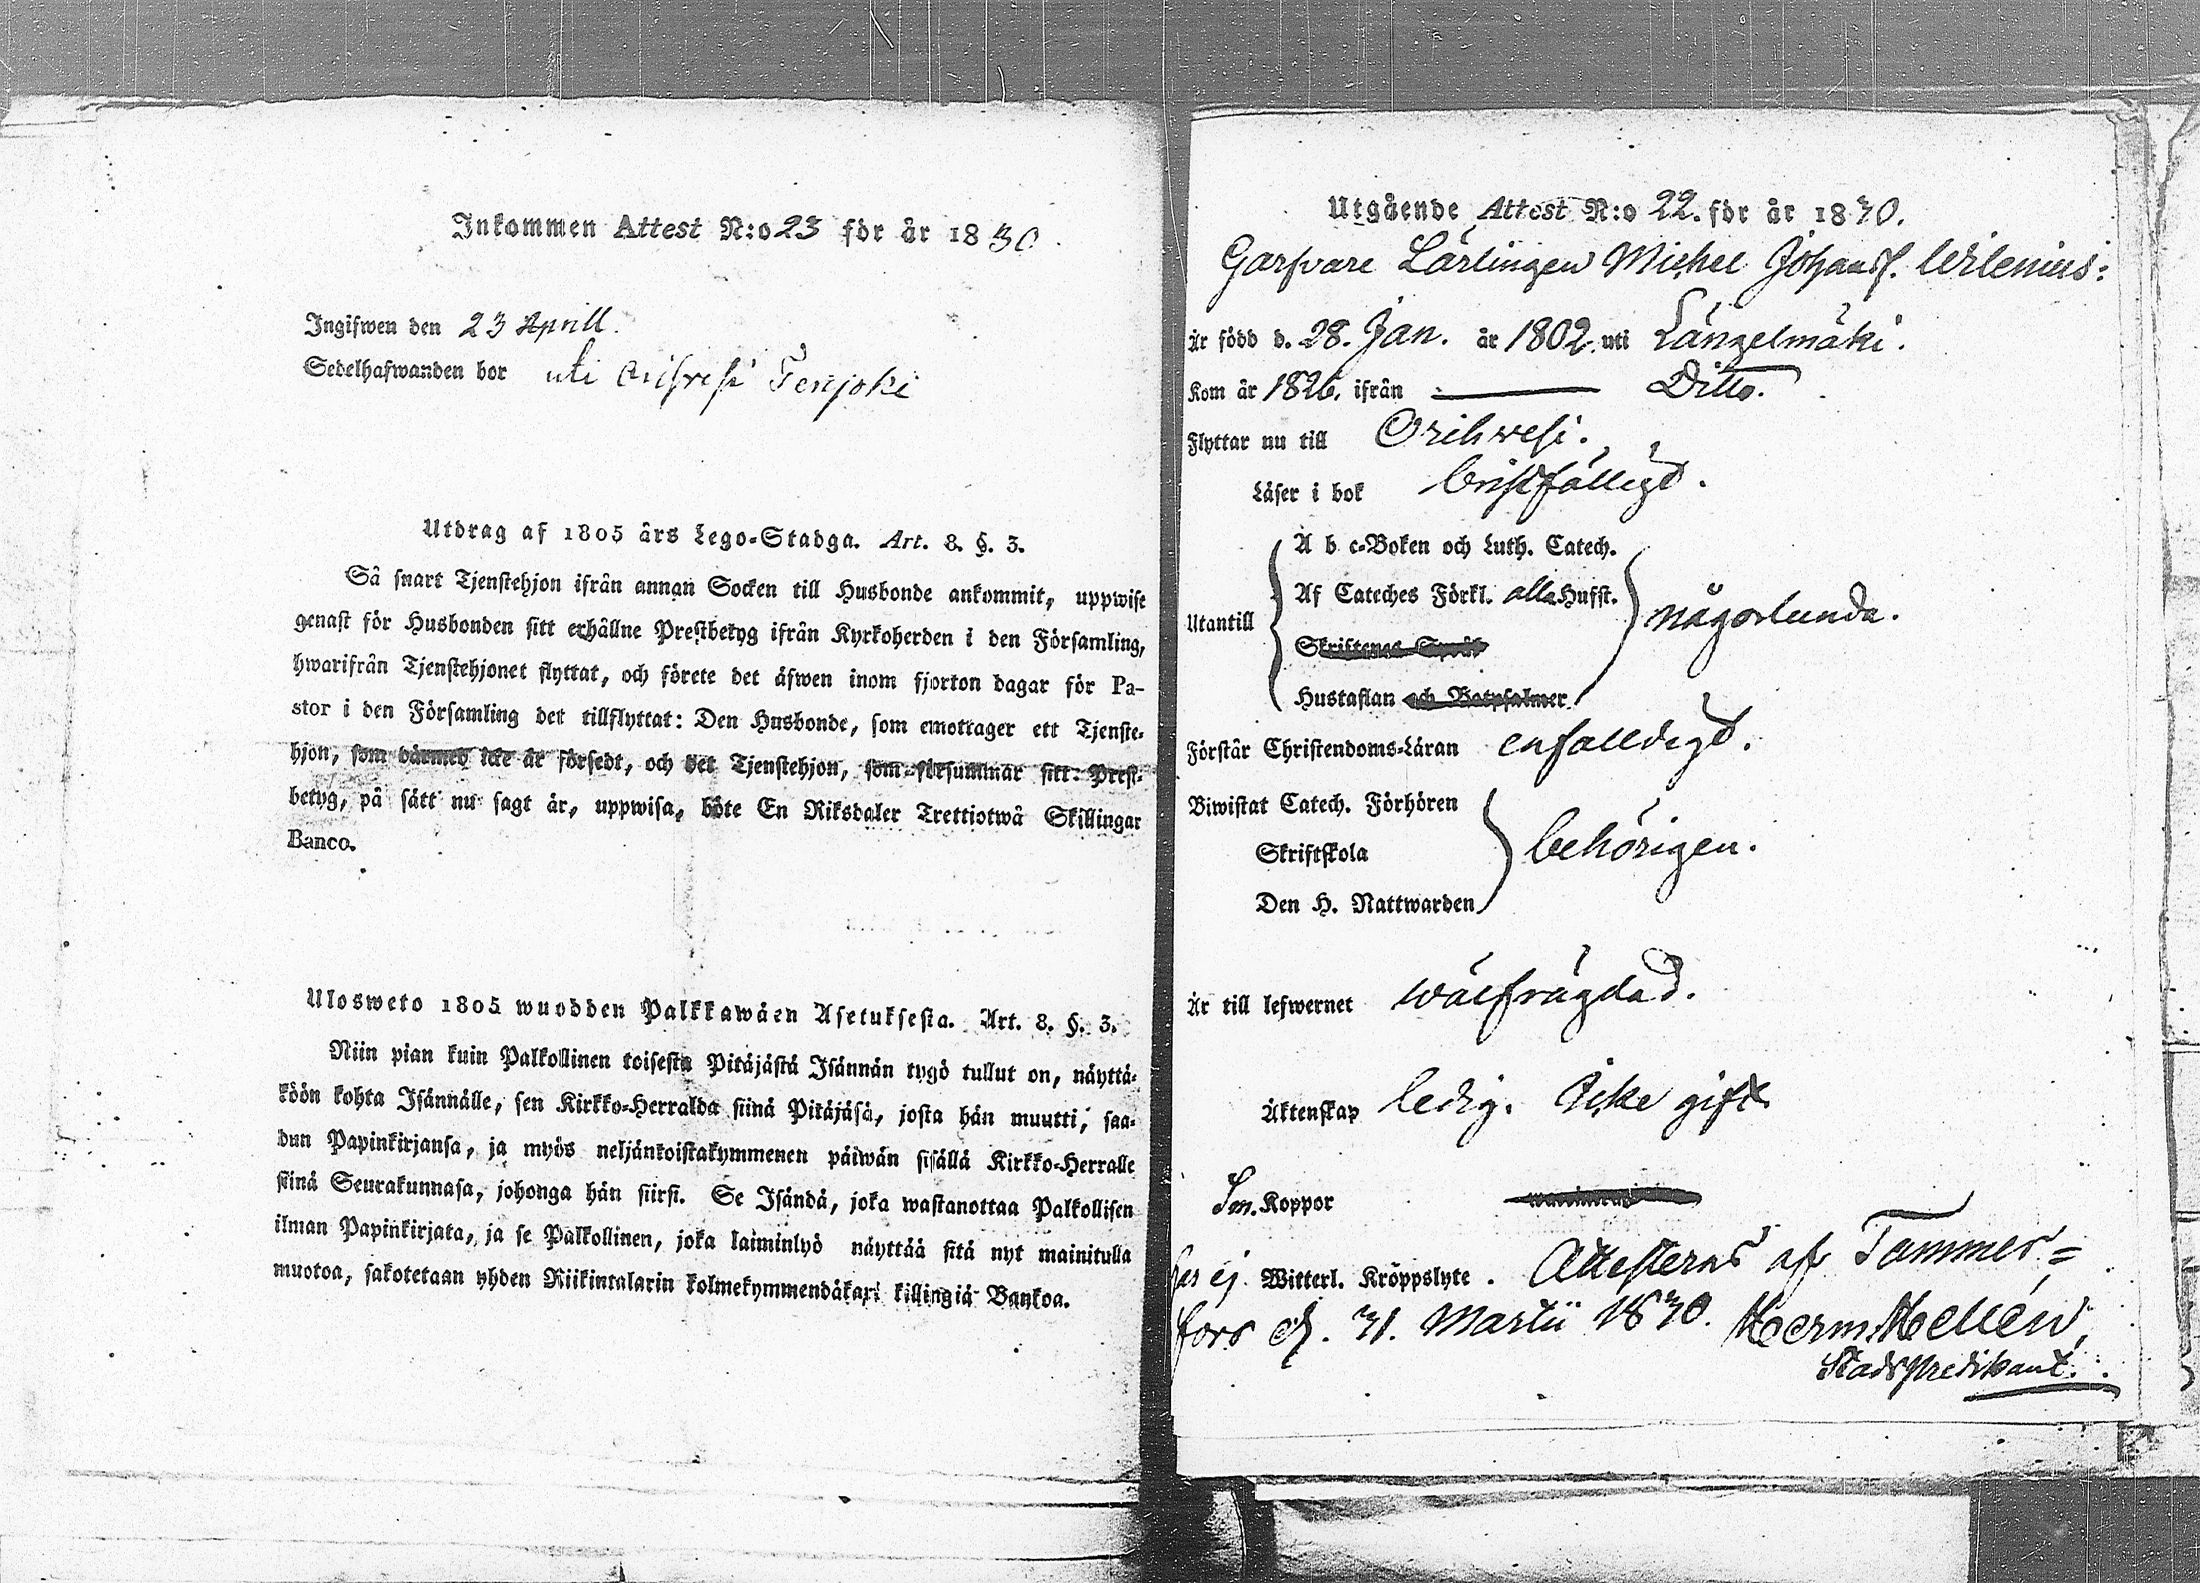 Inkommen Attest N:o 23 för år 1830
Ingifwen den 23 Aprill.
Sedelhafwanden bor uti Orihvesi
Utdrag af 1805 års Lego-Stadga. Art. 8. §. 3.
Så snart Tjenstehjon ifrån annan Socken till Husbonde ankommit, uppwise
genast för Husbonden sitt erhållne Prestbetyg ifrån Kyrkoherden i den Församling,
hwarifrån Tjenstehjonet flyttat, och förete det äfwen inom fjorton dagar för Pa-
stor i den Församling det tillflyttat: Den Husbonde, som emottager ett Tjenste-
hjon, som därmed icke är försedt, och det Tjenstehjon, som försummar sitt Prest-
betyg, på sätt nu sagt är, uppwisa, böte En Riksdaler Trettiotwå Skillingar
Banco.
Ulosweto 1805 wuodden Palkkawäen Asetuksesta. Art. 8. §. 3.
Niin pian kuin Palkollinen toisesta Pitäjästä Isännän tygö tullut on, näyttä-
köön kohta Isännälle, sen Kirkko-Herralda siinä Pitäjäsä, josta hän muutti, saa-
dun Papinkirjansa, ja myös neljänkoistakymmenen päiwän sisällä Kirkko-Herralle
siinä Seurakunnasa, johonga hän siirsi. Se Isändä, joka wastanottaa Palkollisen
ilman Papinkirjata, ja se Palkollinen, joka laiminlyö näyttää sitä nyt mainitulla
muotoa, sakotetaan yhden Riikintalarin kolmekymmendäkaxi killingiä Bankoa.
Utgående Attest N:o 22. för år 1830.
Garfvare Lärlingen Michel Johanss. Wilenius:
Är född d. 28. Jan. år 1802. uti Längelmäki.
Kom år 1826. ifrån Ditto.
Flyttar nu till Orihwesi.
Läser i bok bristfälligt.
A b c-Boken och Luth. Catech.
Af Cateches Förkl. alla Hufst.
Utantill någorlunda.
Skriftenes Språk
Hustaflan och Botpsalmer
Förstår Christendoms-Läran enfalldigt.
Biwistat Catech. Förhören
Skriftskola behörigen.
Den H. Nattwarden
Är till lefwernet wälfrägdad.
Äktenskap ledig. Icke gift
Sm. Koppor
har ej Witterl. Kroppslyte. Attesteras af Tammer-
fors d. 31. Martii 1830. Herm. Hellén,
Stadspredikant.